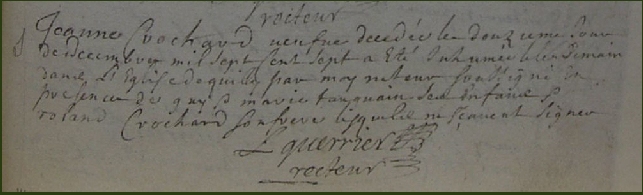 recteur
Jeanne Crochard veufve decedée le douzieme Jour
de decembre mil sept sent sept a Eté Inhumée le lendemain
dans L'Eglise par moy recteur soussigné En
presence de marie tanquain ses Enfans
roland Crochard son frere lesquels ne sçavent signer
L guerrier
recteur